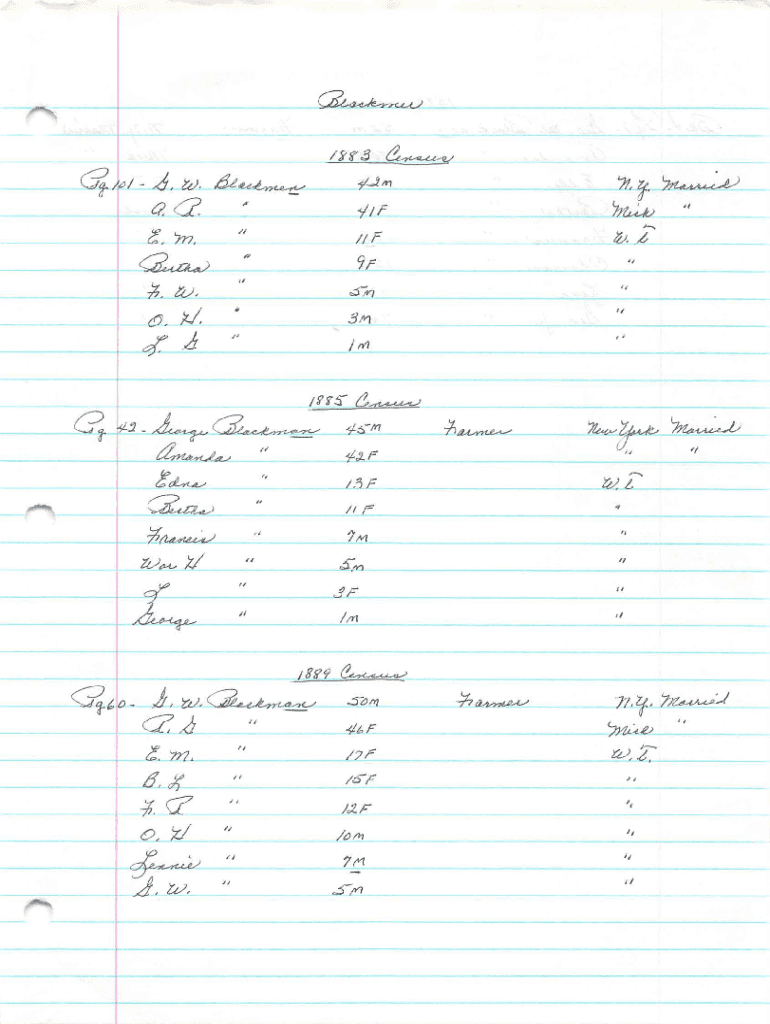 Blackmer
1883 Census
Pg. 101 - G. W. Blackman 42M N.Y. Married
A. R. " 41F Mich "
E. M. " 11F W. T.
Bertha " 9F "
F. W. " 5M "
O. H. " 3M "
L. G " 1M "
1885 Census
Pg. 42 - George Blackman 45M Farmer New York Married
Amanda " 42F " "
Edna " 13F W. T.
Bertha " 11F "
Francis " 7M "
War H " 5M "
L " 3F "
George " 1M "
1889 Census
Pg 60 - G. W. Blackman 50M Farmer N.Y. Married
R. G " 46F Mich "
E. M. " 17F W. T.
B. L " 15F "
F. R " 12F "
O. H " 10M "
Lennie " 7M "
G. W. " 5M "